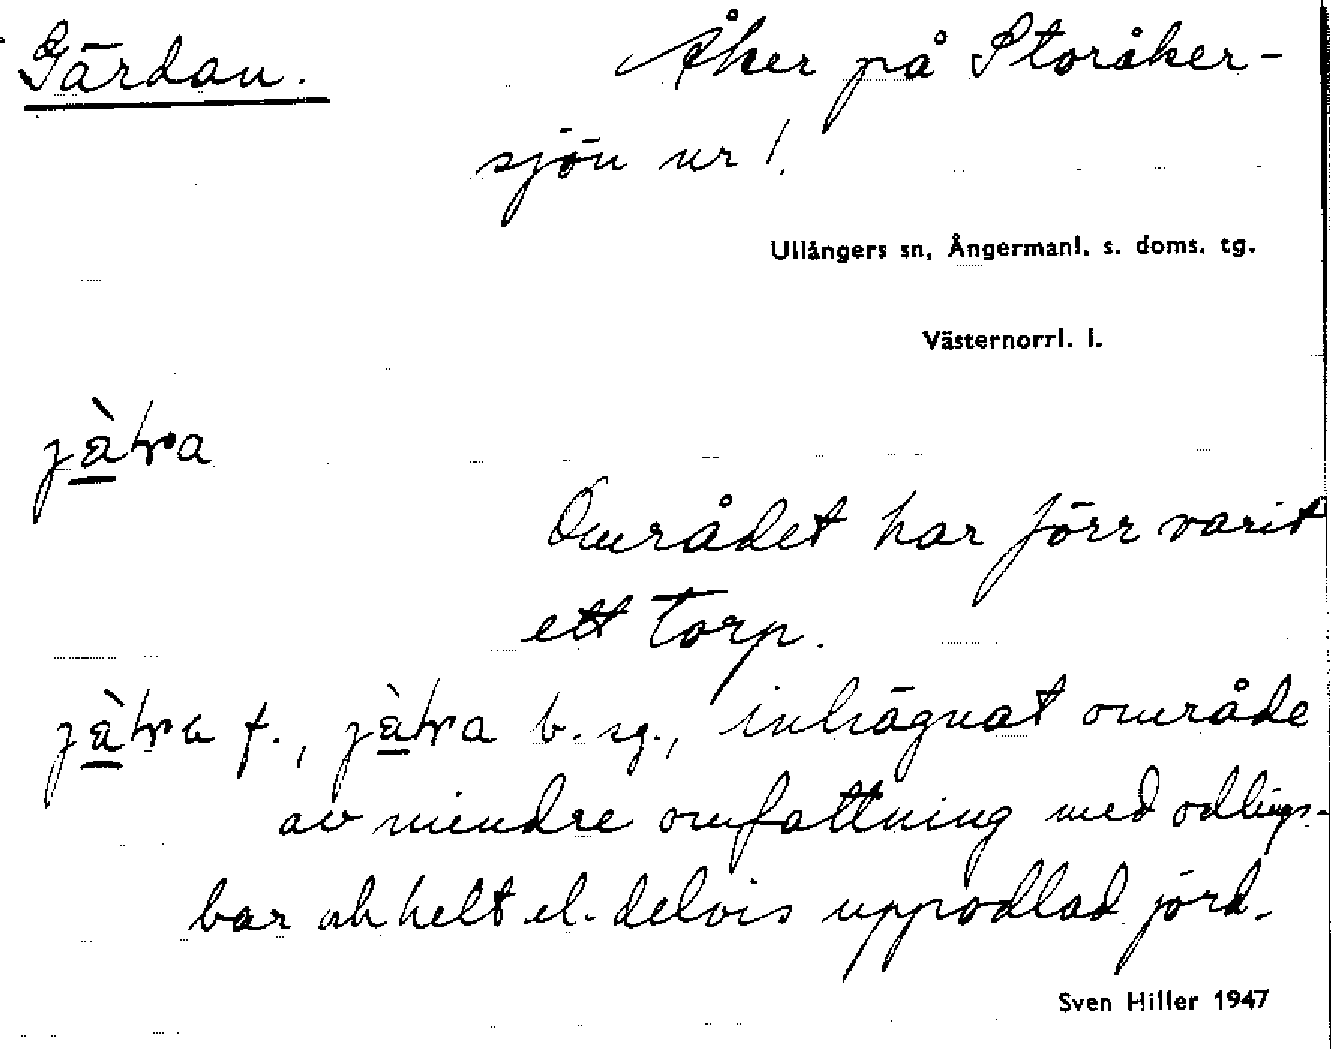 Gärdan. Åker på Storåker-
sjön nr 1.
Ullångers sn, Ångermanl. s. doms. tg.
Västernorrl. l.
Området har förr varit
ett torp.
f., b. sg., inhägnat område
av mindre omfattning med odlings-
bar och helt el. delvis uppodlad jord.
Sven Hiller 1947